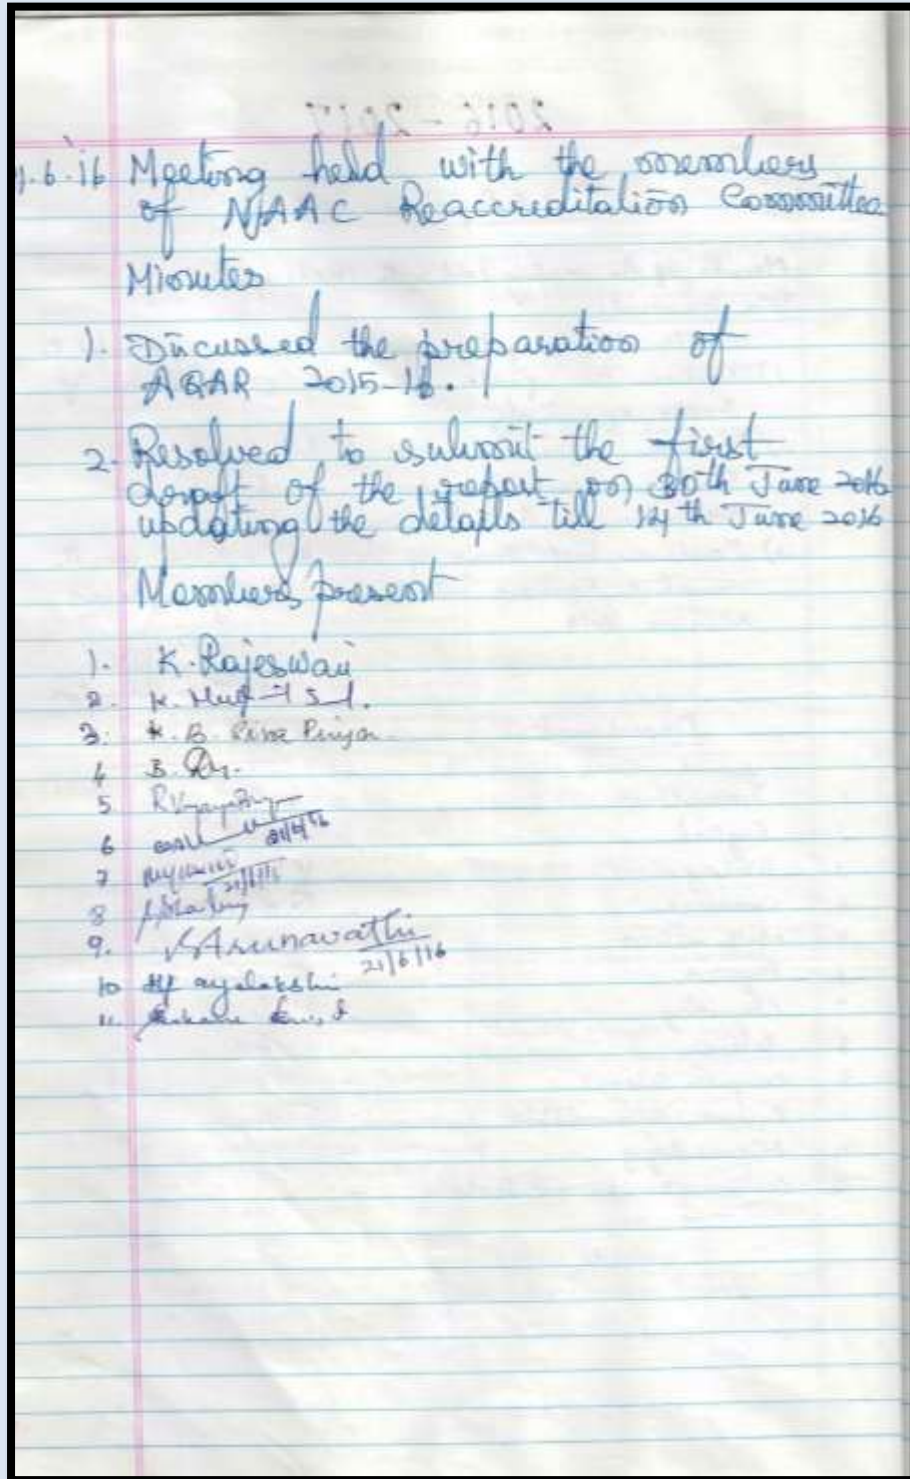 2016-2017
.6.16 Meeting held with the members
of NAAC Reaccreditation Committee
Minutes
1. Discussed the preparation of
AQAR 2015-16.
2. Resolved to submit the first
draft of the report on 30th June 2016
updating the details till 14th June 2016
Members present
1. K. Rajeswari
2. K.
3. K. B. Siva Priya
4 B.
5 R Vijaya
6 21/6/16
7 21/6/16
8
9. Arunavathi
21/6/16
10
11.